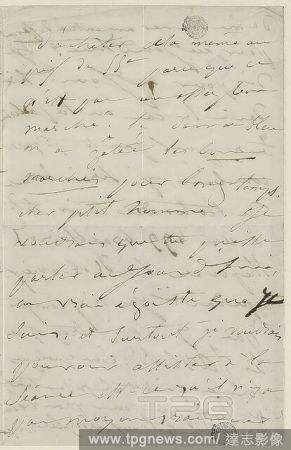 d'acheter la même au
prix de 55 parce que ce
n'est pas un assez bon
marché, le
m'a gâté les bons
marchés pour longtemps
cher p'tit homme. Je
voudrais que tu puisses
parler aujourd'hui,
en vraie égoïste que je
suis, et surtout je voudrais
pouvoir assister à la
séance est-ce qu'il n'y a
pas moyen
TPG
www.tpgnews.com 達志影像